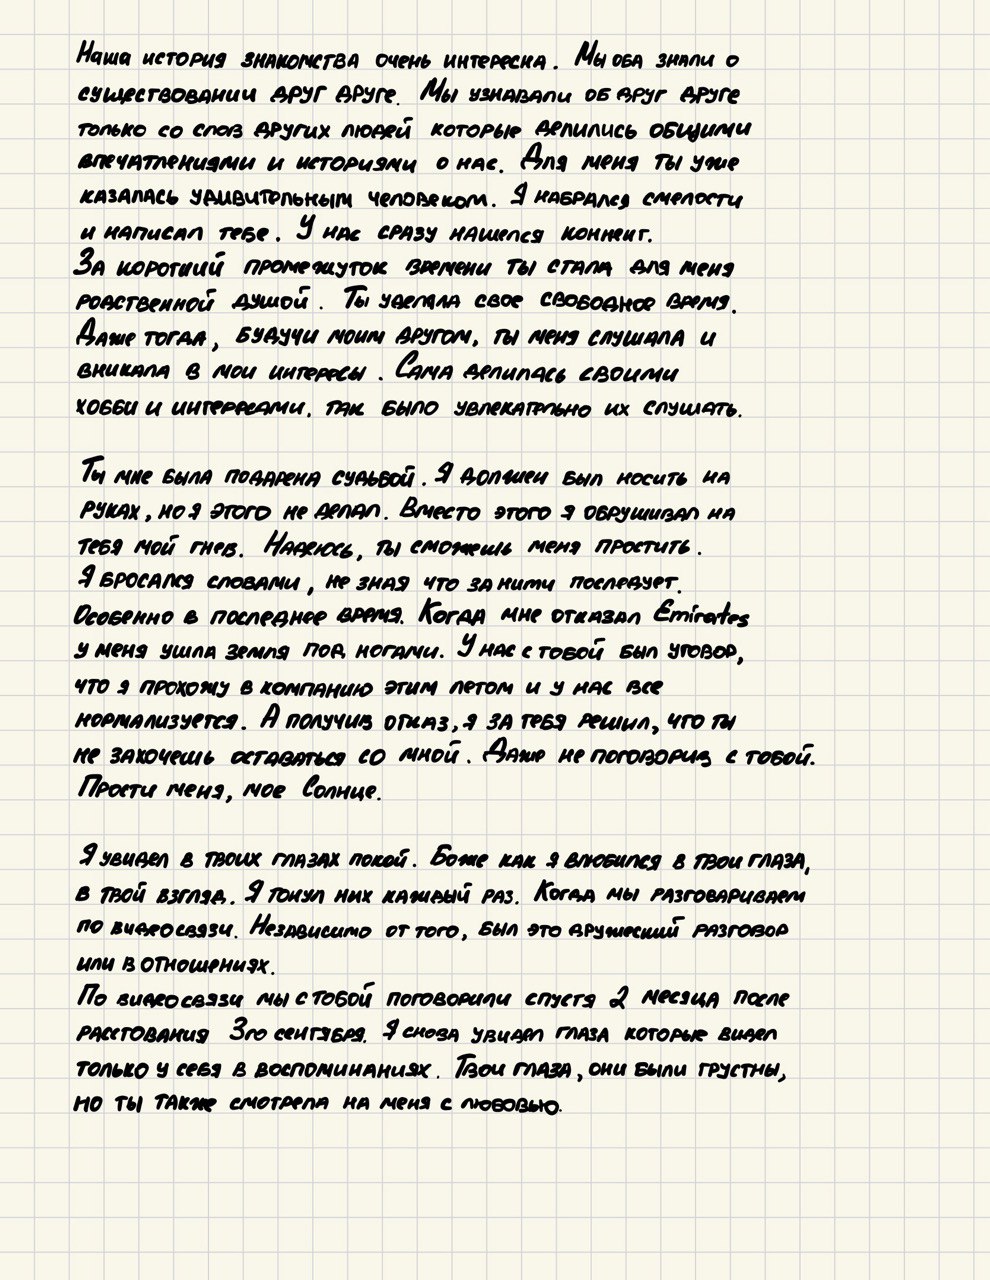 Наша история знакомства очень интересна. Мы оба знали о
существовании друг друге. Мы узнавали об друг друге
только со слов других людей которые делились общими
впечатлениями и историями о нас. Для меня ты уже
казалась удивительным человеком. Я набрался смелости
и написал тебе. У нас сразу нашелся коннект.
За короткий промежуток времени ты стала для меня
родственной душой. Ты уделяла свое свободное время.
Даже тогда, будучи моим другом, ты меня слушала и
вникала в мои интересы. Сама делилась своими
хобби и интересами. так было увлекательно их слушать.
Ты мне была подарена судьбой. Я должен был носить на
руках, но я этого не делал. Вместо этого я обрушивал на
тебя мой гнев. Надеюсь, ты сможешь меня простить.
Я бросался словами, не зная что за ними последует.
Особенно в последнее время. Когда мне отказал Emirates
у меня ушла земля под ногами. У нас с тобой был уговор,
что я прохожу в компанию этим летом и у нас все
нормализуется. А получив отказ, я за тебя решил, что ты
не захочешь оставаться со мной. Даже не поговорив с тобой.
Прости меня, мое Солнце.
Я увидел в твоих глазах покой. Боже как я влюбился в твои глаза,
в твой взгляд. Я тонул них каждый раз. Когда мы разговариваем
по видеосвязи. Независимо от того, был это дружеский разговор
или в отношениях.
По видеосвязи мы с тобой поговорили спустя 2 месяца после
расстования 3го сентября. Я снова увидел глаза которые видел
только у себя в воспоминаниях. Твои глаза, они были грустны,
но ты также смотрела на меня с любовью.